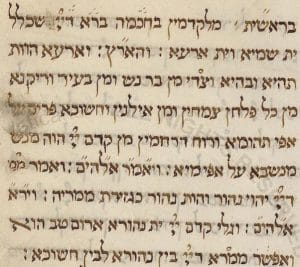 בראשית מלקדמין בחכמה ברא דייי שכלל
ית שמיא וית ארעא : והארץ : וארעא הוות
תהיא ובהיא וצדי מן בר נש ומן בעיר וריקנא
מן כל פלחן צמחין ומן אילנין וחשוכא פריס על
אפי תהומא ורוח דרחמין מן קדם ייי הוה מנש
מנשבא על אפי מיא : ויאמר אלהים : ואמר ממ
דייי יהוי נהור והוה נהור כגזירת ממריה : וירא
אלהים : וגלי קדם ייי ית נהורא ארום טב הוא
ואפרש ממרא דייי בין נהורא לבין חשוכא :